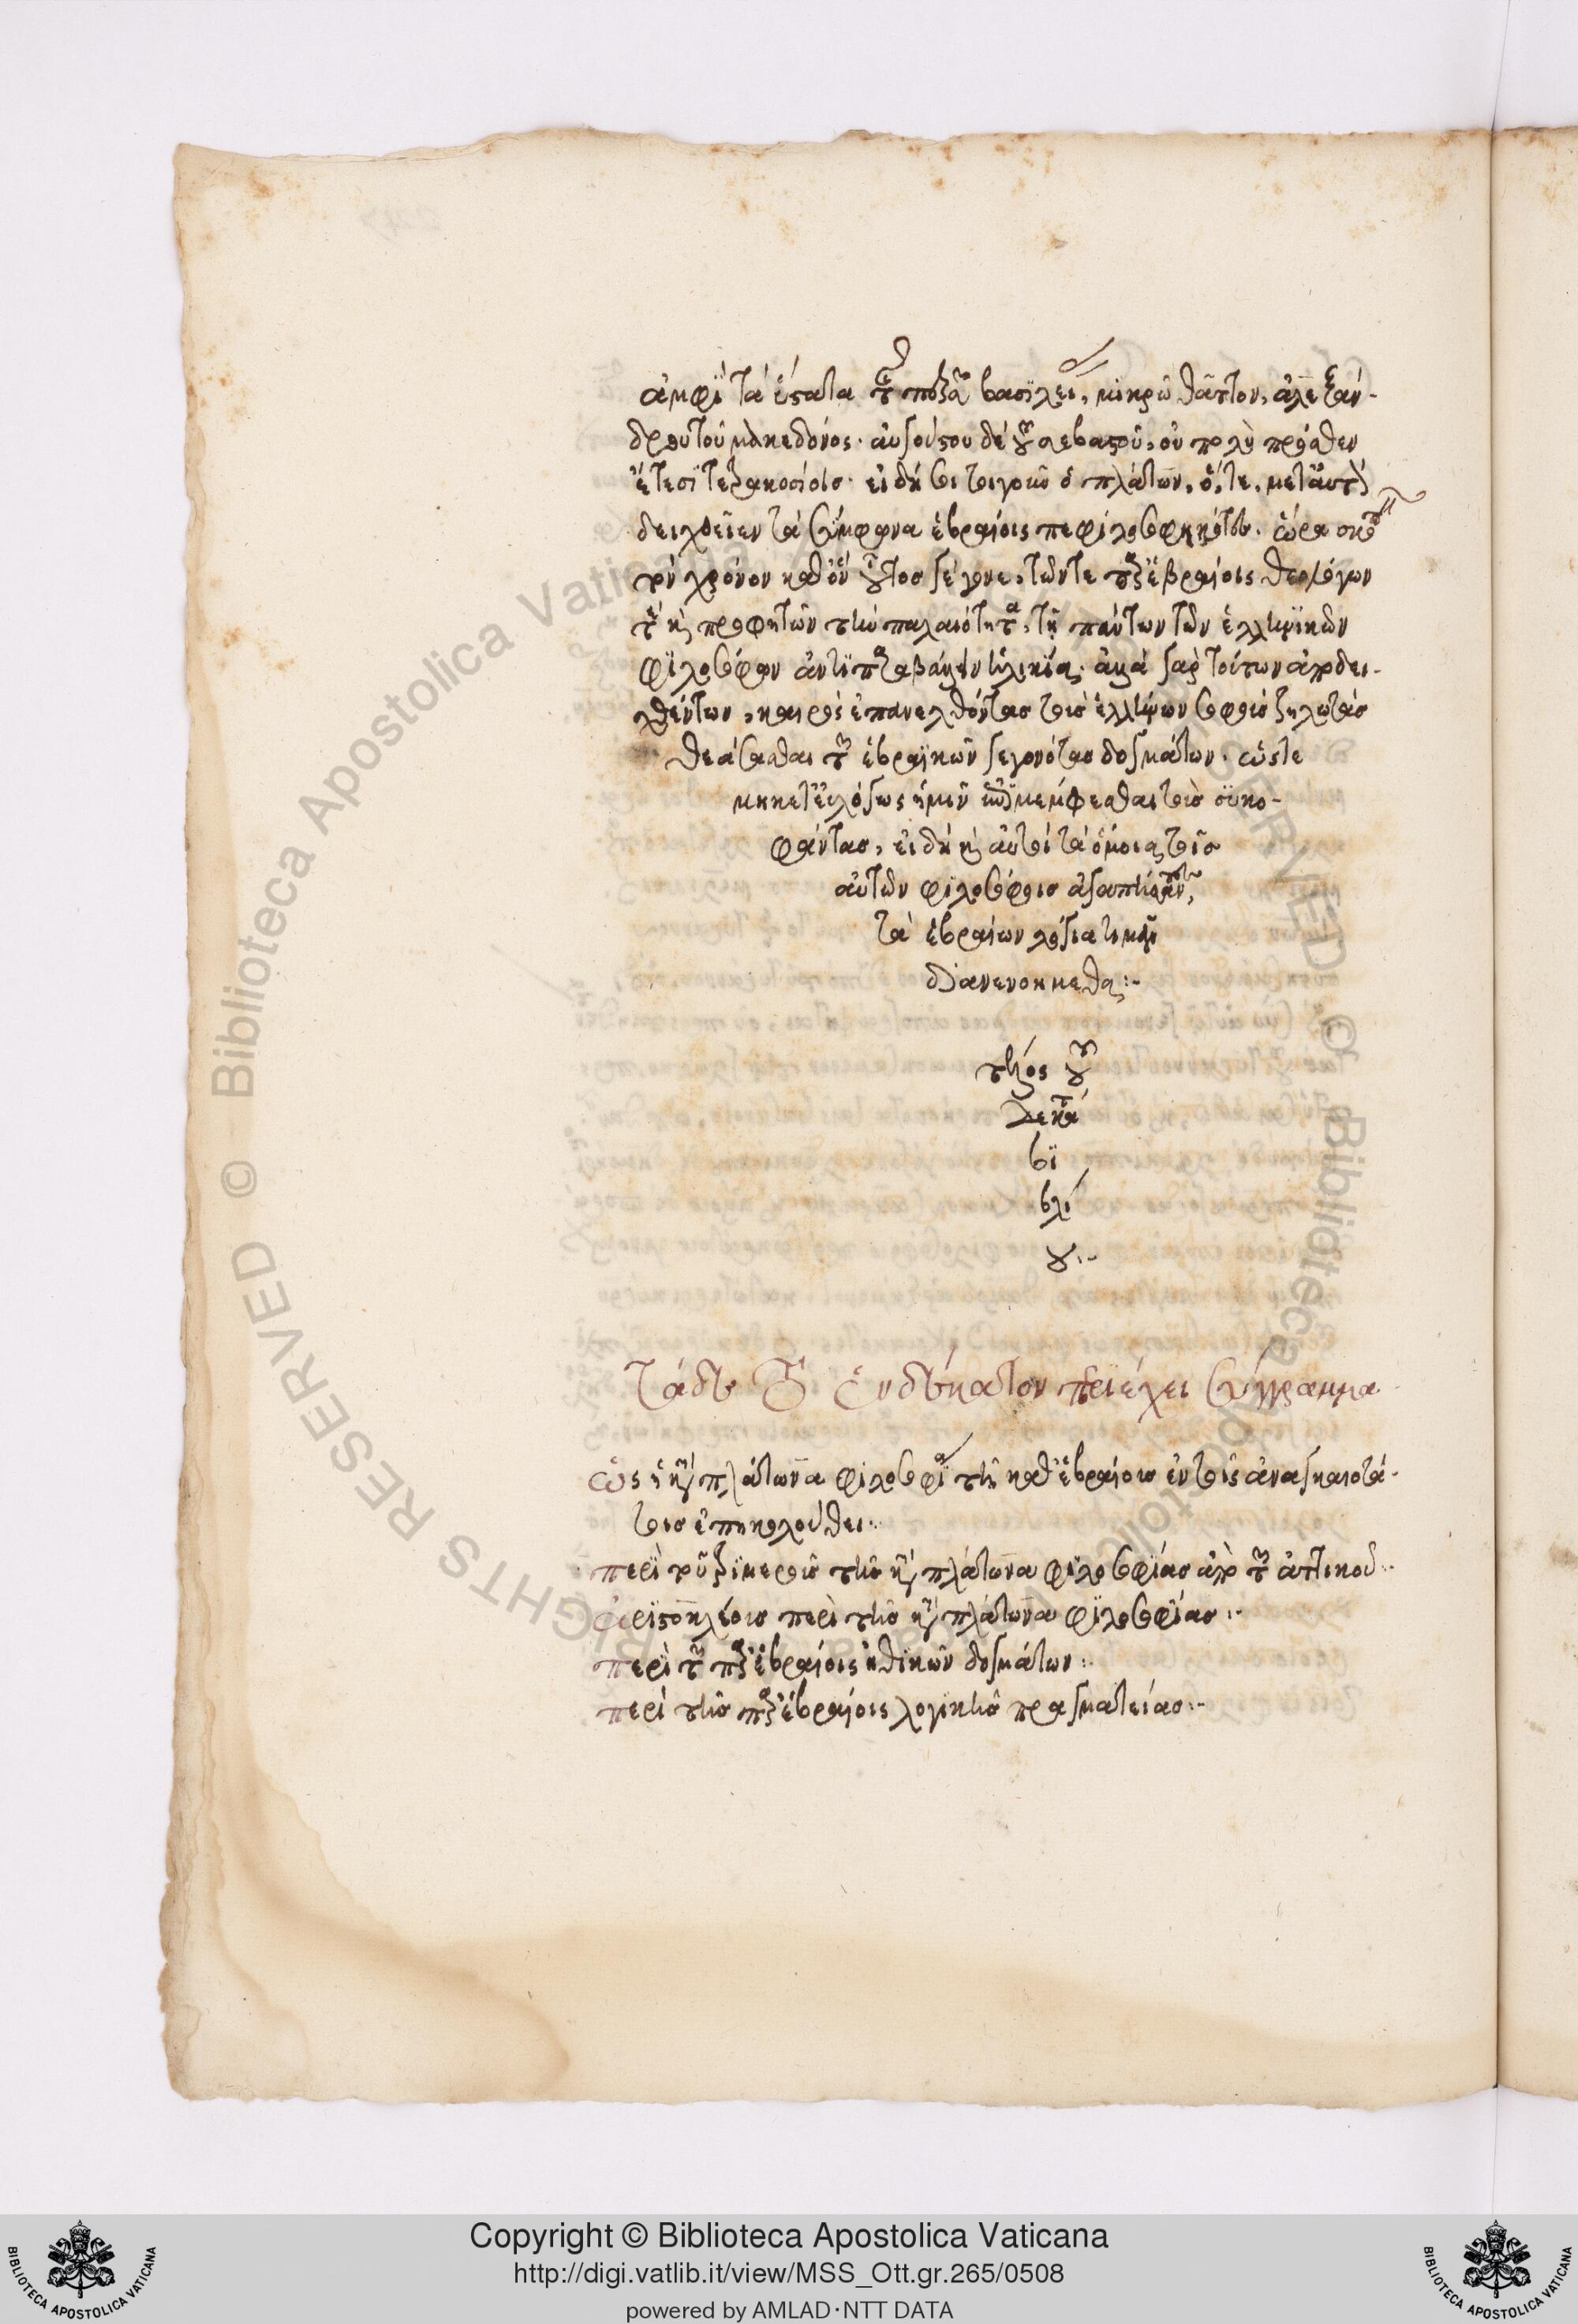 ἀμφὶ τὰ ἔσχατα τῆς περσῶν βασιλείας, μικρῷ θᾶττον, ἀλεξάν-
δρου τοῦ μακεδόνος. αὐγούστου δὲ τοῦ σεβαστοῦ, οὐ πολὺ πρόσθεν
ἔτεσι τετρακοσίοις. εἰ δή σοι τοιγαροῦν ὁ πλάτων, ὅ, τε, μετ' αὐτὸν
δειχθεῖεν τὰ σύμφωνα ἑβραίοις πεφιλοσοφηκότες. ὥρα σκοπεῖν
τὸν χρόνον καθ' ὃν οὗτος γέγονε, τῶν τε παρ' ἑβραίοις θεολόγων
τε καὶ προφητῶν τὴν παλαιότητα, τῇ πάντων τῶν ἑλληνικῶν
φιλοσόφων ἀντιπαραβάλλειν ἡλικίᾳ. ἀλλὰ γὰρ τούτων ἀποδει-
χθέντων, καιρὸς ἐπανελθόντας τοὺς ἑλλήνων σοφοὺς ζηλωτὰς
θεάσασθαι τῶν ἑβραϊκῶν γεγονότας δογμάτων. ὥστε
μηκέτ' εὐλόγως ἡμῖν ἐπιμέμφεσθαι τοὺς συκο-
φάντας, εἰ δὴ καὶ αὐτοὶ τὰ ὅμοια τοῖς
αὐτῶν φιλοσόφοις ἀγαπήσαντες,
τὰ ἑβραίων λόγια τιμᾶν
διανενοήμεθα:-
τέλος τοῦ
δεκάτου
βι
βλί
ου:-
Τάδε τὸ ἑνδέκατον περιέχει σύγγραμμα
ὡς ἡ κατὰ πλάτωνα φιλοσοφία τῇ καθ' ἑβραίοις ἐν τοῖς ἀναγκαιοτά-
τοις ἐπηκολούθει:-
περὶ τοῦ τριμεροῦς τῆς κατὰ πλάτωνα φιλοσοφίας ἀπὸ τῶν ἀττικοῦ:-
ἀριστοκλέους περὶ τῆς κατὰ πλάτωνα φιλοσοφίας:-
περὶ τῶν παρ' ἑβραίοις ἠθικῶν δογμάτων:-
περὶ τῆς παρ' ἑβραίοις λογικῆς πραγματείας:-
Copyright © Biblioteca Apostolica Vaticana
http://digi.vatlib.it/view/MSS_Ott.gr.265/0508
powered by AMLAD·NTT DATA